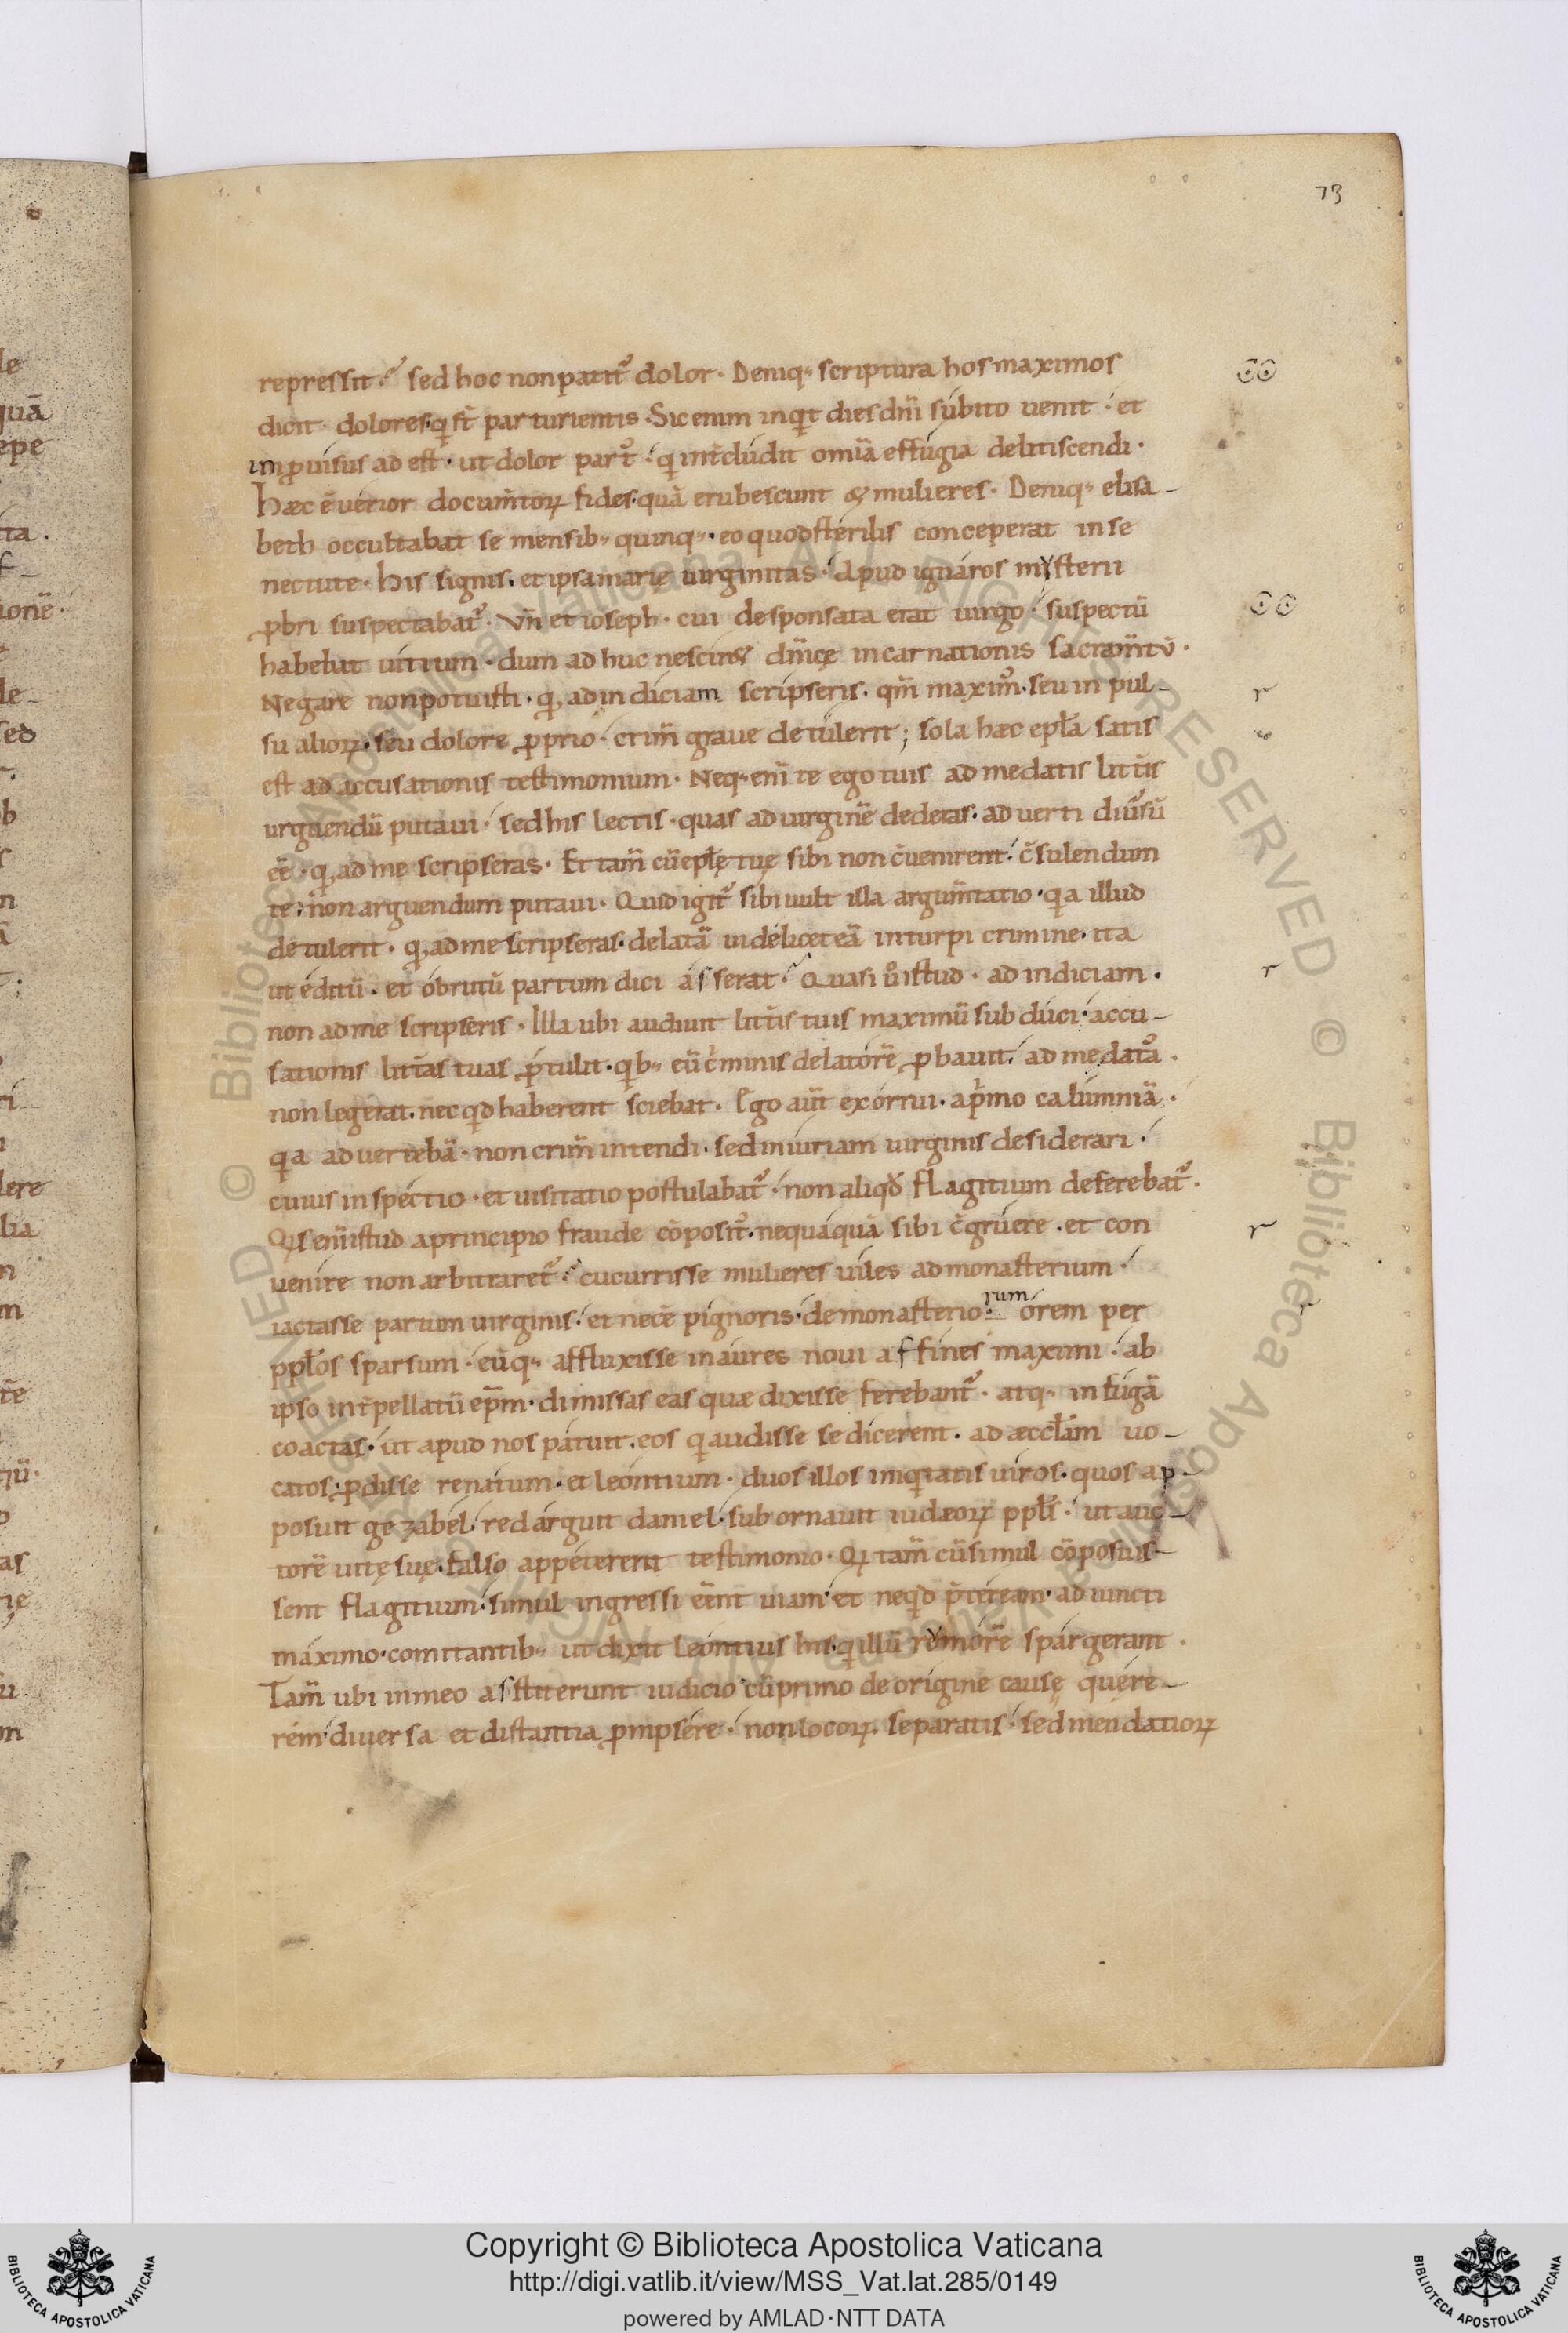 73
repressit. sed hoc non patit᷑ dolor· Deniq· scriptura hos maximos
dicit dolores q st̄ parturientis· Sic enim inqͥt dies dn̄i súbito uenit· et
imꝓuisus ad est· ut dolor part᷑· qͥ int̄clúdit omīa effúgia delitiscendi·
Hæc ē uerior documt̄oꝝ fides· quā erubescunt & mulieres· Deniq· elisa-
beth occultabat se mensib· quinq·· eo quod stérilis conceperat in se
nectute· his signis· et ipsa marię uirginitas· apud ignáros mẏsterii
ꝓbri suspectabat᷑· Vn̄ et ioseph· cui desponsata erat uirgo· suspectū
habebat uitium· dum ad huc nescins dn̄icę incarnationis sacram̄tū·
Negare non potuisti· qͥ ad indiciam scripseris· qm̄ maxim᷒· seu in pul-
su alioꝝ· seu dolore ꝓprio· crim̄ graue detúlerit; sola hæc epl̄a satis
est ad accusationis testimonium· Neq· eni te ego tuis ad me datis litt̄is
urguendū putaui· sed his lectis· quas ad uirginē dederas· ad uerti diūsū
eē· q ad me scripseras· Et tam̄ cū epl̄ę tuę sibi non c̄uenirent· c̄sulendum
te· non arguendum putaui· Quid igit᷑ sibi uult illa argum̄tatio· qͥa illud
detulerit· q ad me scripseras· delatā uidélicet eā in turpi crimine· ita
ut éditū· et óbrutū partum dici ásserat· Quasi u᷒ istud· ad indiciam·
non ad me scripseris· Illa ubi audiuit litt̄is tuis maximū sub dúci· accu-
sationis litt̄as tuas ꝓ́tulit· qͥb· eū cͥminis delatórē ꝓbauit· ad me data᷒·
non legerat· nec qͥd haberent sciebat· Ego aut̄ exórrui· a pͥmo calumniā·
qͥa ad uertebā· non crim̄ intendi· sed iniuriam uirginis desiderari·
cuius inspectio· et uisitatio postulabat᷑· non aliqd̄ flagitium deferebat᷑·
Qͥs enī istud a principio fraude cōposit᷒· nequáquā sibi c̄grúere· et con
uenire non arbitraret᷑· cucurrisse mulieres uiles ad monasterium·
iactasse partum uirginis· et necē pignoris· de monasterio rum órem per
ppl̄os sparsum· eūq· affluxisse in aures noui affines maximi· ab
ipso int̄pellatū ep̄m· dimissas eas quæ dixisse ferebant᷑· atq· in fúgā
coactas· ut apud nos pátuit· eos qͥ audisse se dicerent· ad æccl̄am uo-
catos; ꝓdisse renátum· et leóntium· duos illos iniqͥtatis uiros· quos ap-
posuit gezábel· redárguit daniel· sub ornauit iudæoꝝ ppl̄s· ut auc-
torē uitę suę· falso appéterent testimonio· Qͥ tam̄ cū simul cōposuis-
sent flagitium· simul ingressi eēnt uiam· et neqͥd p̄teream· ad iuncti
máximo· comitantib· ut dixit leóntius his· qͥ illū rẏmórē spárgerant·
Tam̄ ubi in meo asstiterunt iudicio cū primo de origine causę quęre-
rem· diuersa et distantia ꝓmpsére· non locoꝝ separatis· sed mendatioꝝ
© Biblioteca Apostolica Vaticana ALL RIGHTS RESERVED
Copyright © Biblioteca Apostolica Vaticana
http://digi.vatlib.it/view/MSS_Vat.lat.285/0149
powered by AMLAD·NTT DATA
BIBLIOTECA APOSTOLICA VATICANA
BIBLIOTECA APOSTOLICA VATICANA